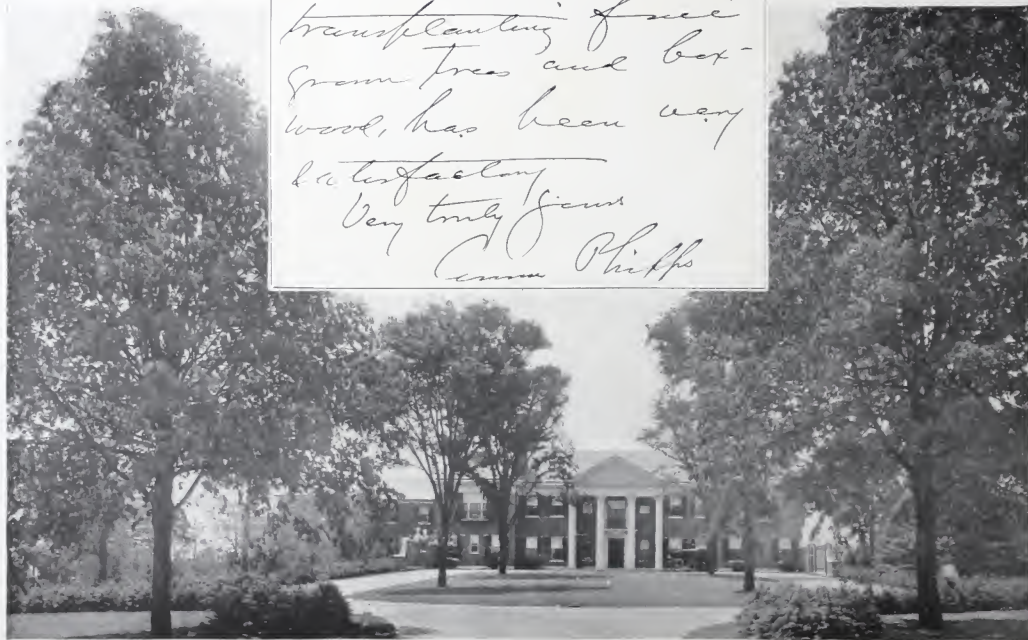 transplanting full
grown trees and box-
wood, has been very
satisfactory
Very truly yours
Phipps